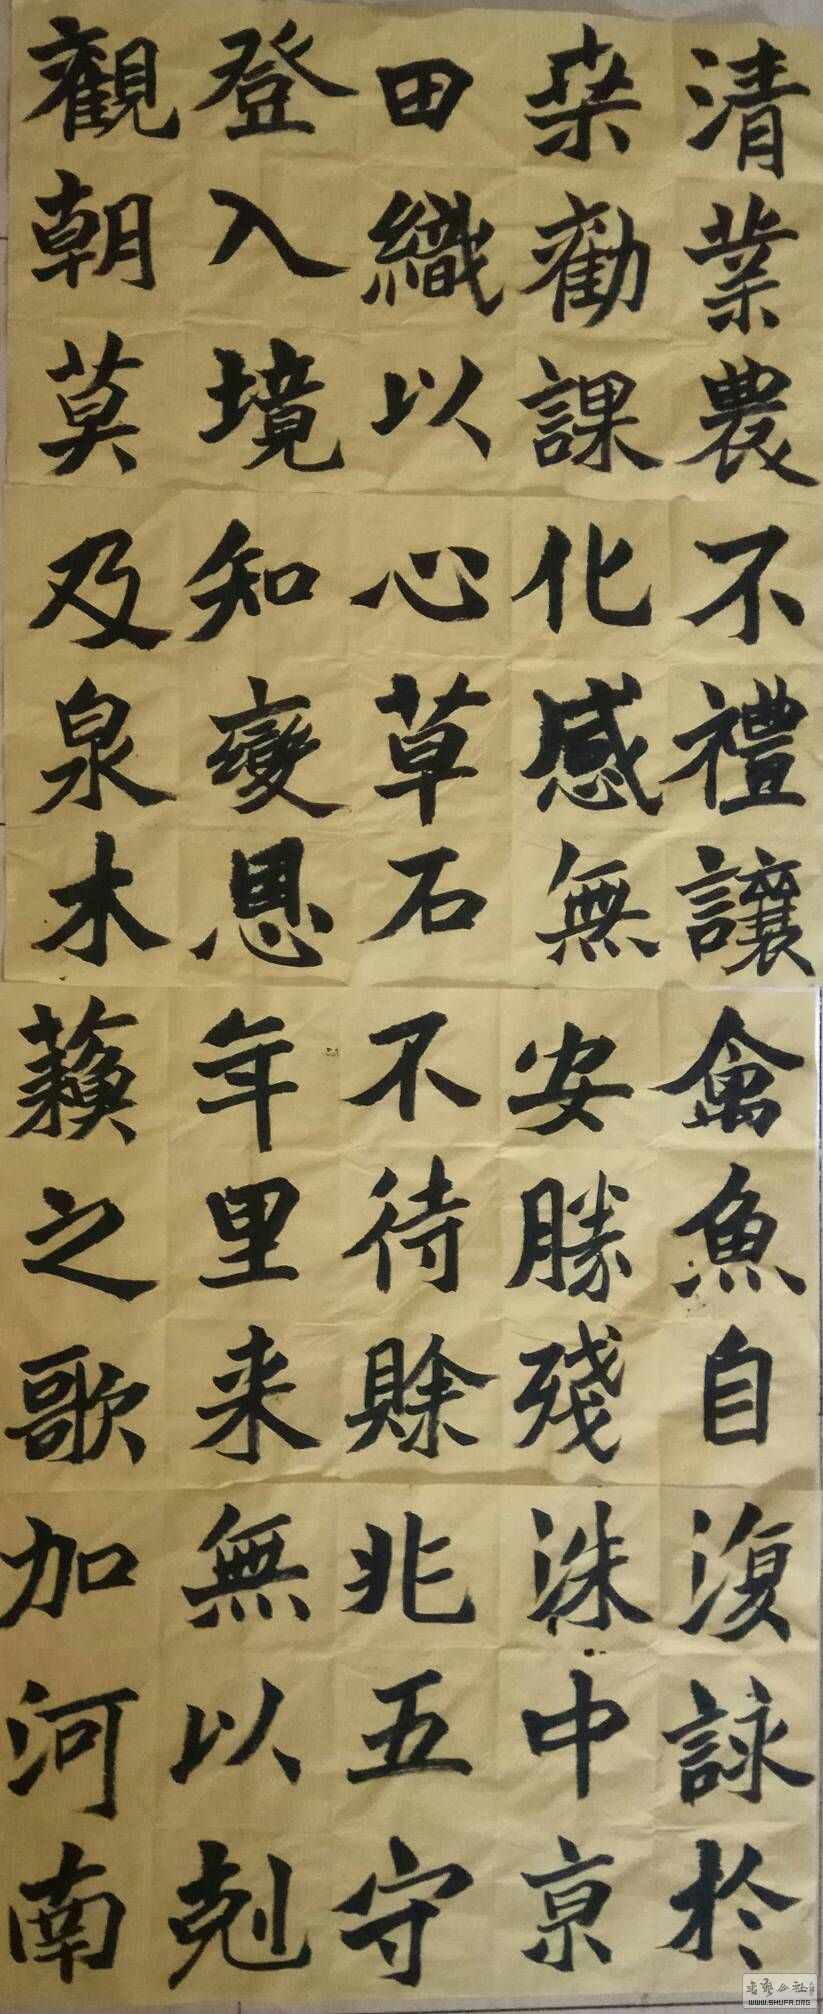 清業農
桒勸課
田織以
登入境
觀朝莫
不禮讓
化感無
心草石
知變恩
及泉木
禽魚自
安勝殘
不待賒
年里来
蘇之歌
復詠於
洙中京
兆五守
無以剋
加河南
WWW.SHUFA.ORG